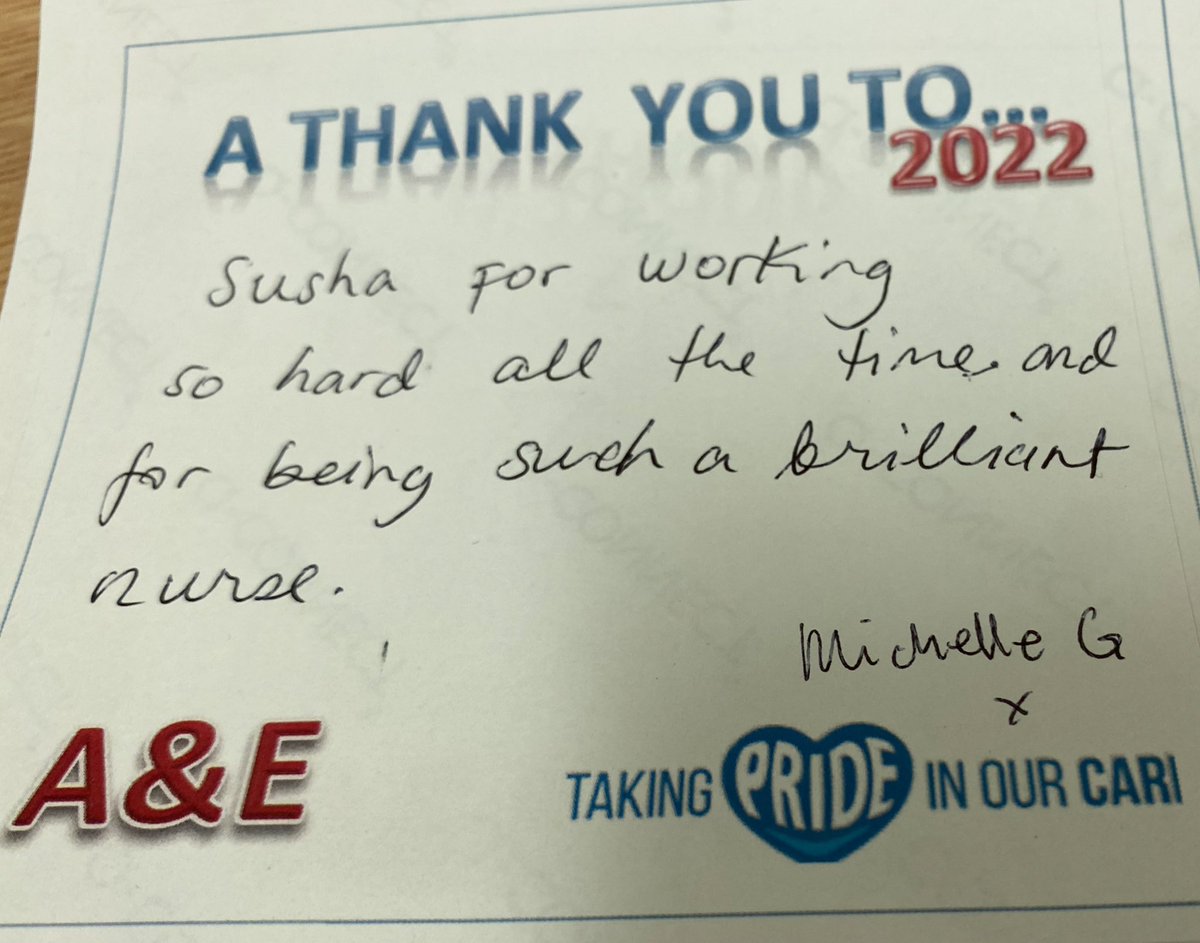 A THANK YOU TO...
2022
Susha For working
so hard all the time and
for being such a brilliant
nurse.
Michelle G
x
A&E
TAKING PRIDE IN OUR CARI